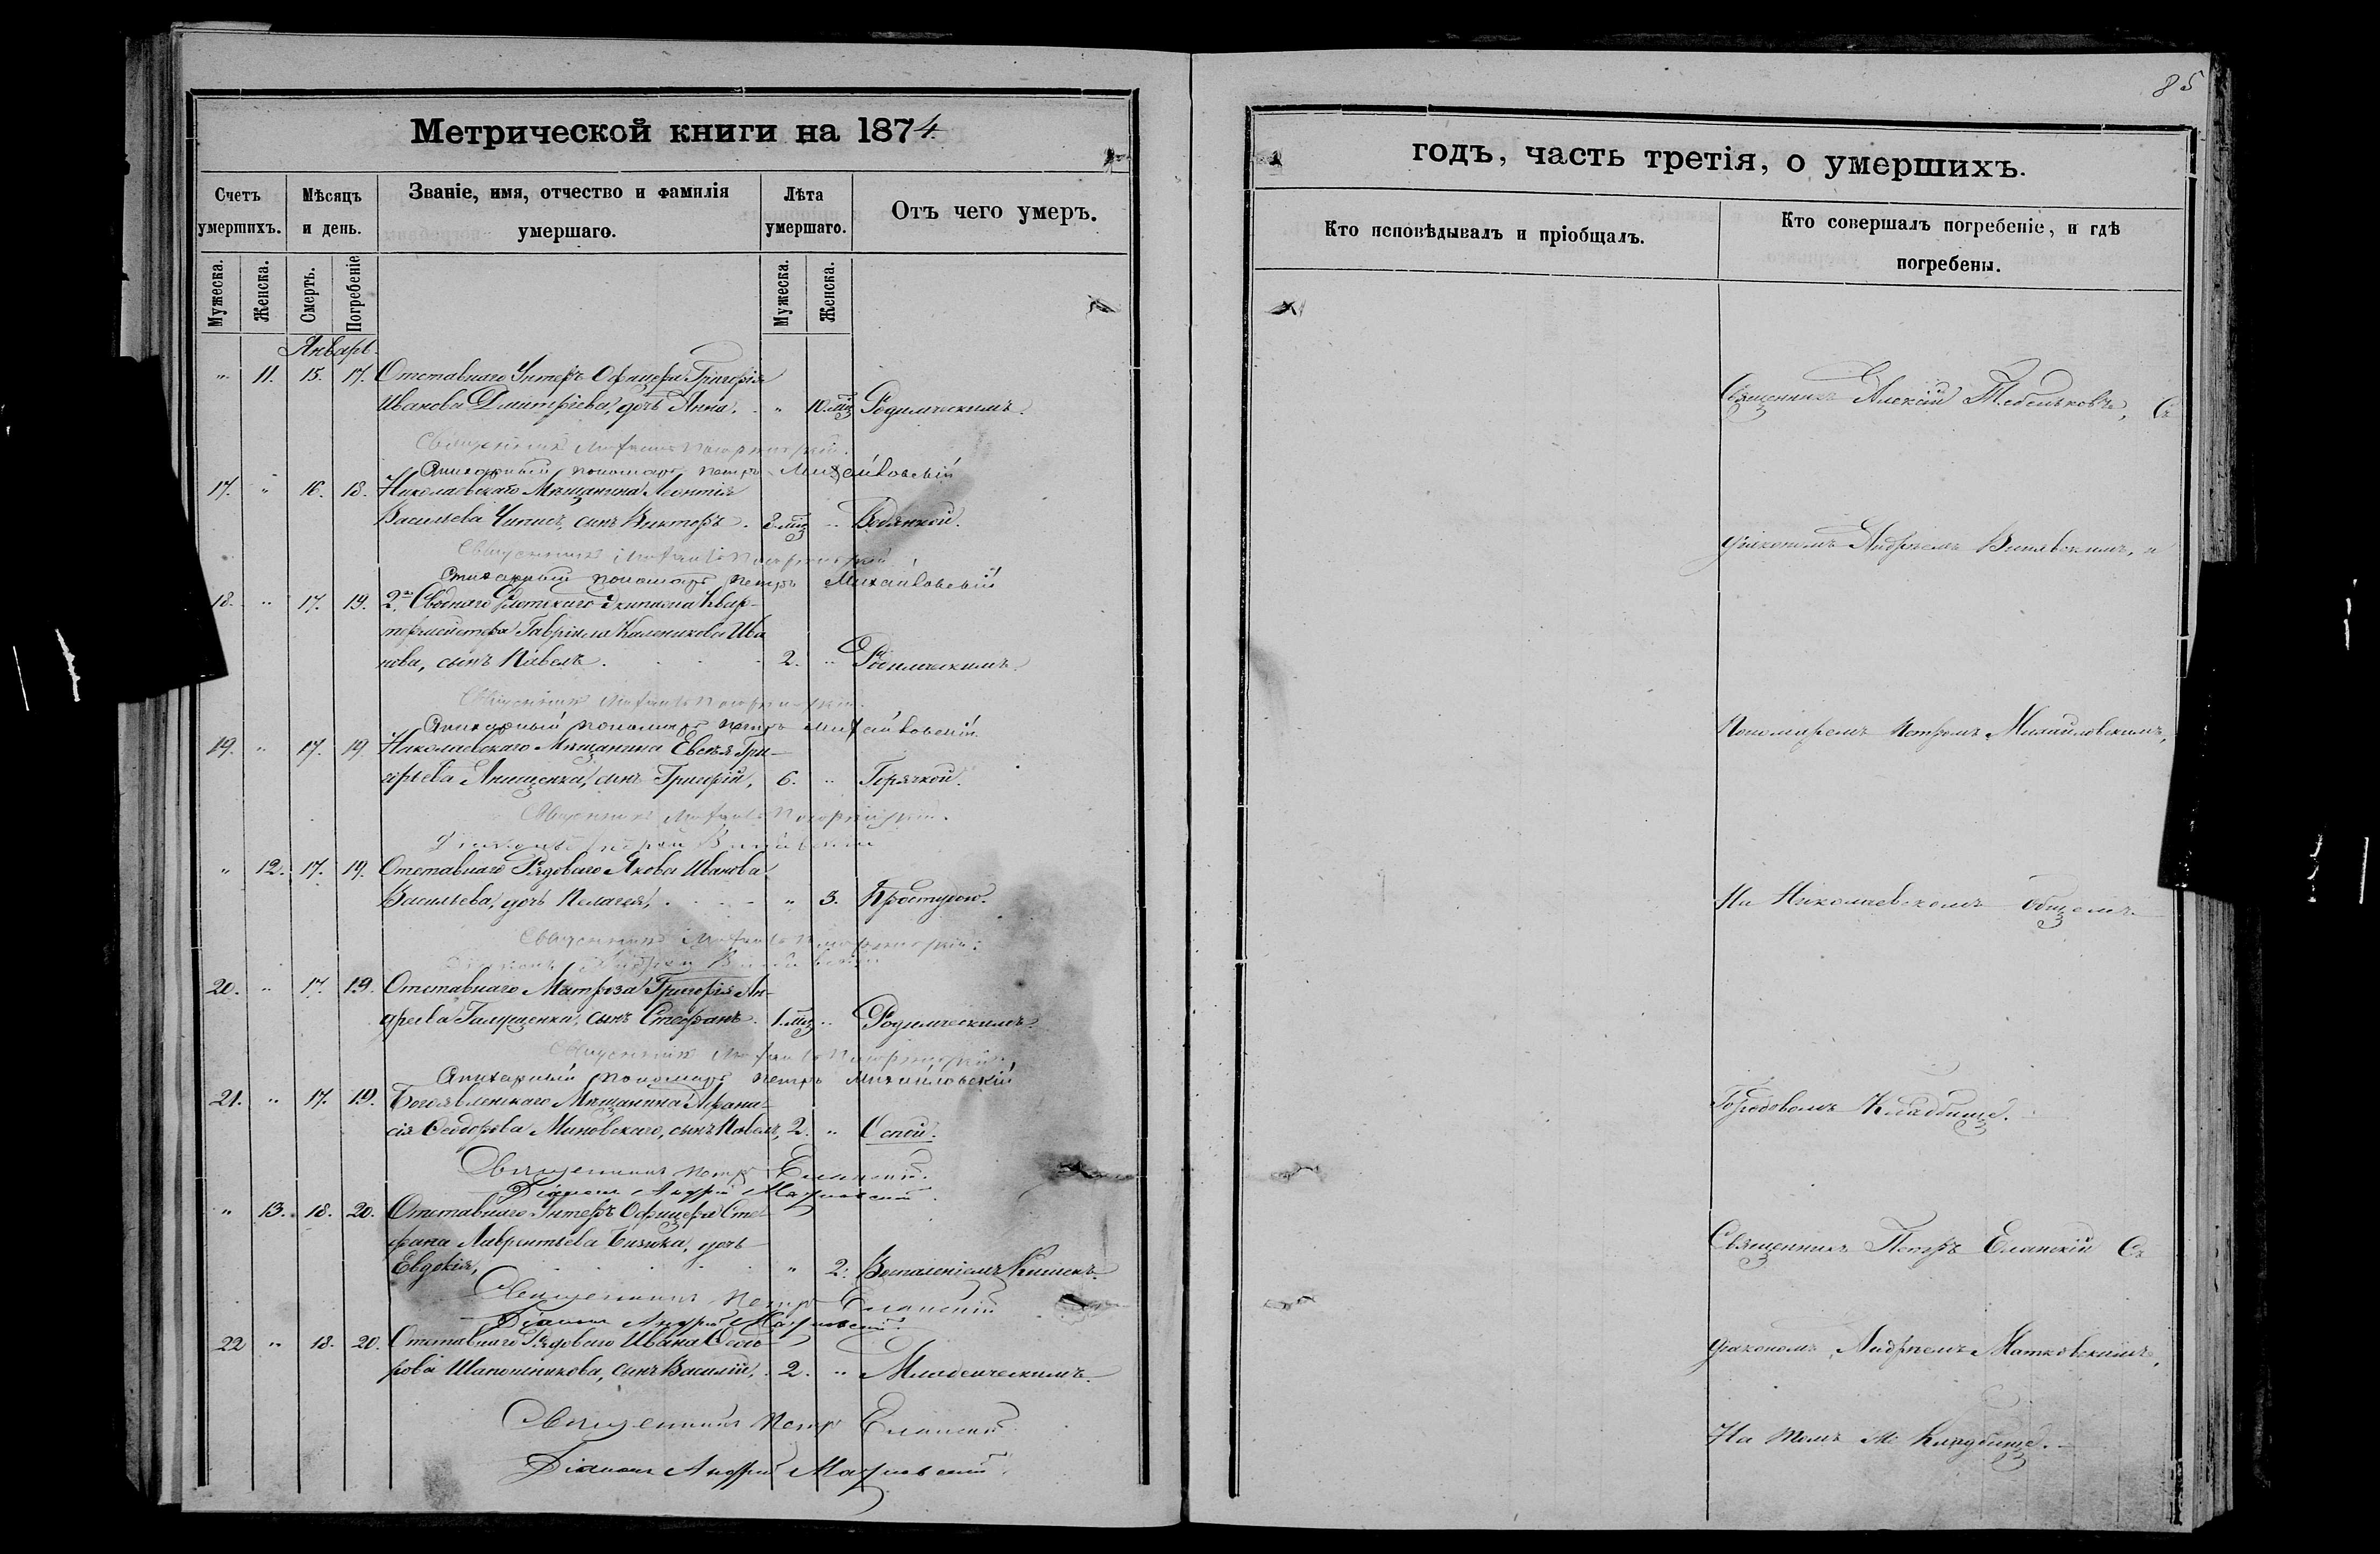 85
Метрической книги на 1874.
годъ, часть третія, о умершихъ.
Счетъ умершихъ.
Мѣсяцъ и день.
Званіе, имя, отчество и фамилія умершаго.
Лѣта умершаго.
Отъ чего умеръ.
Кто исповѣдывалъ и пріобщалъ.
Кто совершалъ погребеніе, и гдѣ погребены.
Мужеска.
Женска.
Смерть.
Погребеніе
Мужеска.
Женска.
Январь
" 11. 15. 17. Отставнаго Унтеръ Офицера Григорія
Иванова Дмитріева, дочь Анна. " 10 мц Родимческимъ.
Священникъ
Стихарный пономарь Петръ Михайловскій
17. " 16. 18. Николаевскаго Мѣщанина Леонтія
Васильева сынъ Викторъ. 8 мц " Водянкой.
Священникъ
Стихарный пономарь Петръ Михайловскій
18. " 17. 19. 2го Своднаго Флотскаго Экипажа Квар-
тирмейстера Гавріила Каленикова Ива
нова, сынъ Павелъ. 2. " Родимческимъ.
Священникъ
Стихарный пономарь Петръ Михайловскій
19. " 17. 19. Николаевскаго Мѣщанина Евсея Гри-
горьева Анищенка, сынъ Григорій, 6. " Горячкой.
Священникъ
Діаконъ Андрей
" 12. 17. 19. Отставнаго Рядоваго Якова Иванова
Васильева, дочь Пелагея, " 3. Простудою.
Священникъ
Діаконъ Андрей
20. " 17. 19. Отставнаго Матроза Григорія Ан-
дреева Галущенка, сынъ Стефанъ. 1 мц " Родимческимъ.
Священникъ
Стихарный пономарь Петръ Михайловскій
21. " 17. 19. Богоявленскаго Мѣщанина Афана-
сія Ѳеодорова Миновскаго, сынъ Павелъ, 2. " Оспой.
Священникъ Петръ Еланскій.
Діаконъ Андрей Матковскій.
" 13. 18. 20. Отставнаго Унтеръ Офицера Сте-
фана Лаврентьева дочь
Евдокія, " 2. Воспаленіемъ Кишекъ.
Священникъ Петръ Еланскій
Діаконъ Андрей Матковскій.
22 " 18. 20. Отставнаго Рядоваго Ивана Ѳеодо-
рова Шапошникова, сынъ Василій, 2. " Младенческимъ.
Священникъ Петръ Еланскій
Діаконъ Андрей Матковскій.
Священникъ Алексій Съ
діакономъ Андреемъ и
Пономаремъ Петромъ Михайловскимъ,
На Николаевскомъ Общемъ
Городовомъ Кладбищѣ.
Священникъ Петръ Еланскій Съ
діакономъ Андреемъ Матковскимъ,
На томъ же Кладбищѣ.